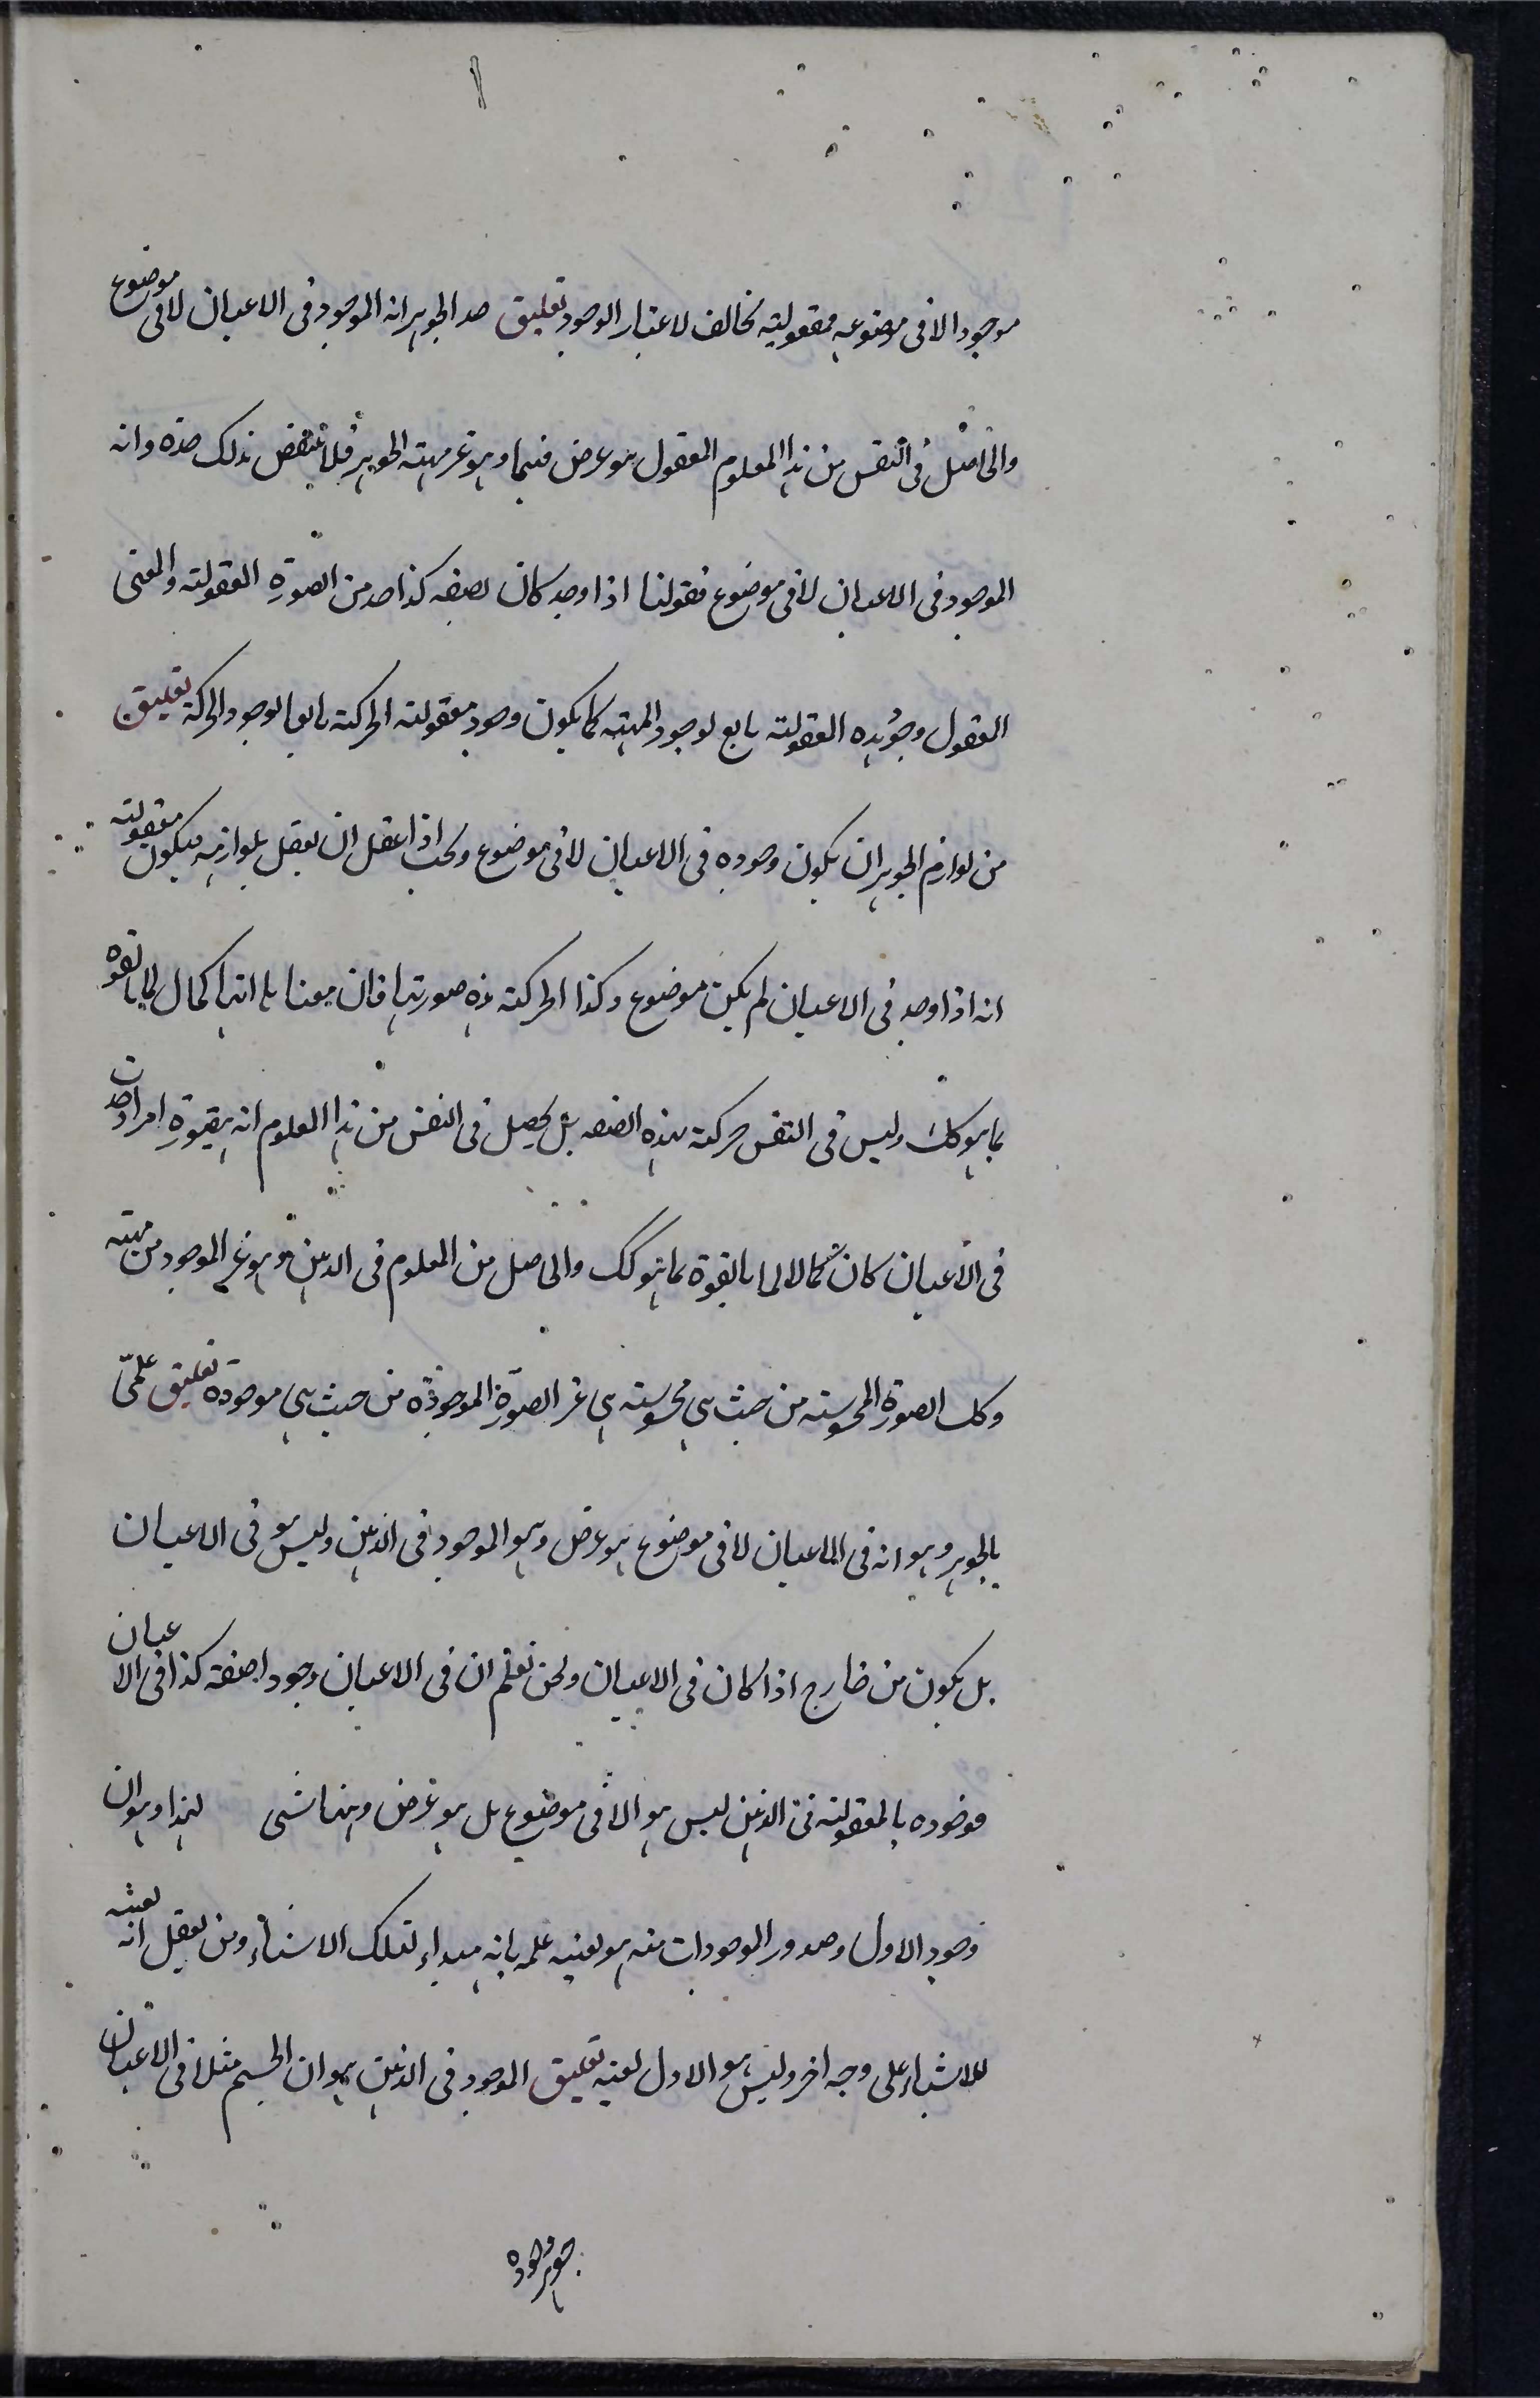 موجودا لا فى موضوعه فمعقوليته مخالف لاعتبار الوجود تعليق حد الجوهر انه الموجود فى الاعيان لا فى موضوع
والحاصل فى النفس من هذا المعلوم المعقول هو عرض فيها وهو غير مهية الجوهر فلا ينتقض بذلك حده وانه
الموجود فى الاعيان لا فى موضوع فقولنا اذا وجد كان بصفه كذا حد من الصورة المعقولته والمعنى
المعقول وجود هذه المعقولته تابع لوجود المهيته كما يكون وجود معقولته الحركته تابعا لوجود الحركة تعليق
من لوازم الجوهر ان يكون وجوده فى الاعيان لا فى موضوع ويجب اذا عقل ان يعقل بلوازمه فيكون معقولته
انه اذا وجد فى الاعيان لم يكن موضوع وكذا الحركته هذه صورتها فان معناها انها كمال لما بالقوه
بما هو كك وليس فى النفس حركته بهذه الصفه بل يحصل فى النفس من هذا المعلوم انه امر اذا وجدت
فى الاعيان كان كمالا لما بالقوة بما هو كك والحاصل من المعلوم فى الذهن هو غير الموجود من مهيته
وكل الصورة المحسوسته من حيث هى محسوسته هى غير الصورة الموجودة من حيث هى موجوده تعليق علمى
بالجوهر وهو انه فى الاعيان لا فى موضوع هو عرض وهو الموجود فى الذهن وليس هو فى الاعيان
بل يكون من خارج اذا كان فى الاعيان ونحن نعلم ان فى الاعيان وجودا صفته كذا فى الاعيان
فوجوده بالمعقولته فى الذهن ليس هو الا فى موضوع بل هو عرض وههنا شى لهذا وهو ان
وجود الاول وصدور الموجودات منه هو بعينيه علمه بانه مبداء لتلك الاشياء ومن يعقل انه بعينه
للاشياء على وجه اخر وليس هو الاول بعينه تعليق الموجود فى الذهن هو ان الجسم مثلا فى الاعيان
جوهر وجوده